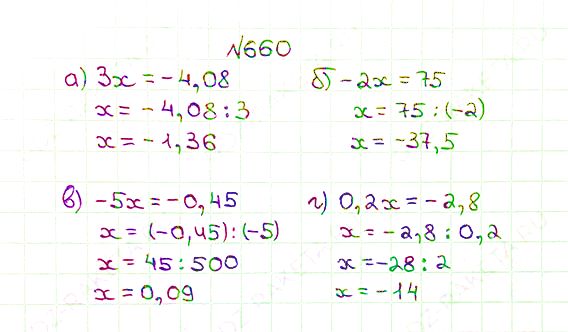 №660
а) 3x = -4,08
x = -4,08 : 3
x = -1,36
б) -2x = 75
x = 75 : (-2)
x = -37,5
в) -5x = -0,45
x = (-0,45) : (-5)
x = 45 : 500
x = 0,09
г) 0,2x = -2,8
x = -2,8 : 0,2
x = -28 : 2
x = -14